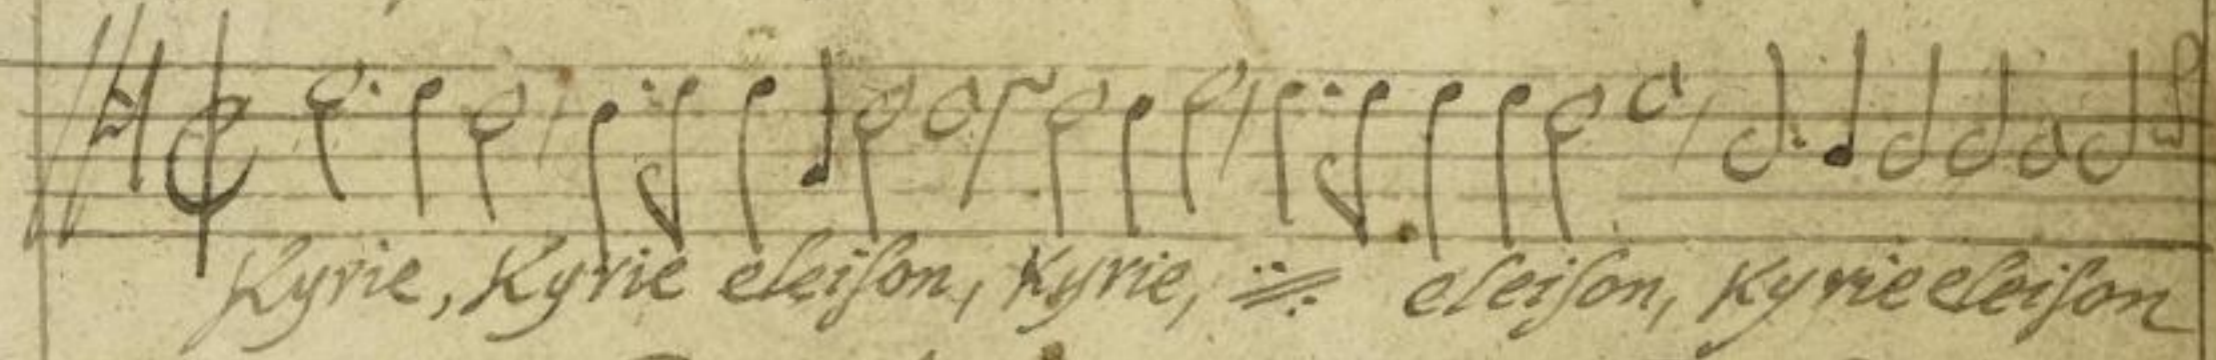 Kyrie, Kyrie eleiſon, Kyrie, eleiſon, Kyrie eleiſon